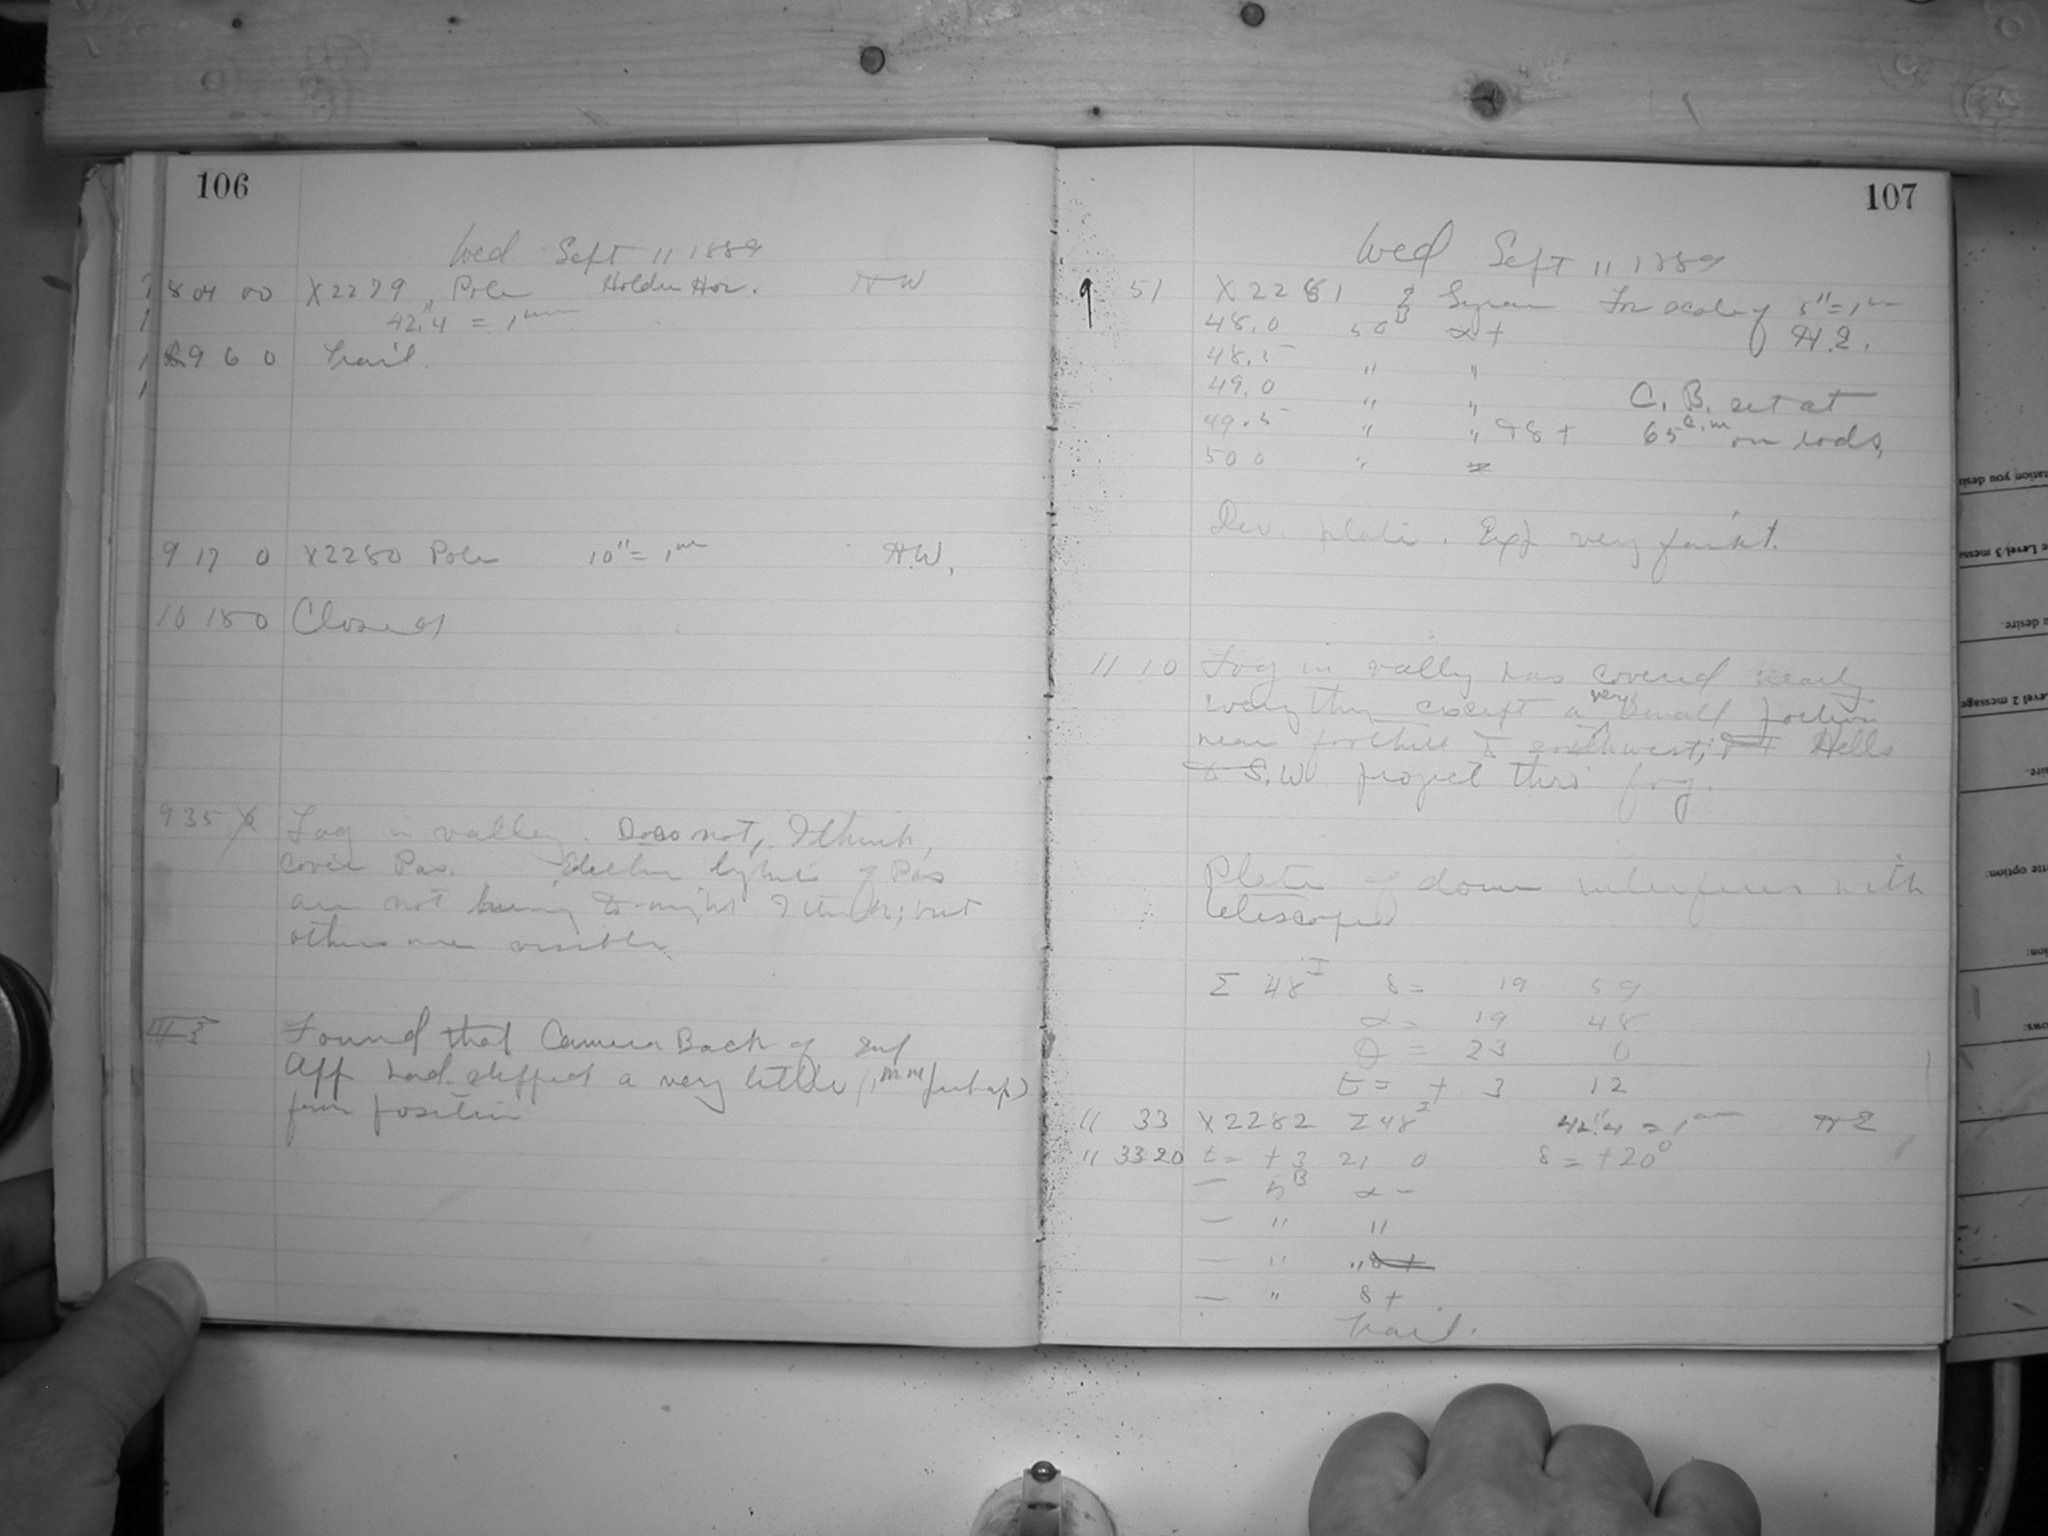 106
Wed Sept 11 1889
8 04 00 X2279 Pole Holder Hor. HW
42."4 = 1mm
8 9 6 0 Trail.
9 17 0 X2280 Pole 10" = 1mm H.W.
10 18 0 Closed
9 35 Fog in valley. Does not, I think,
cover Pas. Electric lights of Pas
are not burning to-night I think; but
others are visible.
Found that Camera Back of
App had slipped a very little (1mm perhaps)
from position
107
Wed Sept 11 1889
9 51 X2281 ζ For scale of 5" = 1mm
48.0 50B α + H.E.
48.5 " "
49.0 " " C. B. set at
49.5 " " δ + 65c.m on rods,
50 0 "
Dev. plate. Exp very faint.
11 10 Fog in vally has covered nearly
everything except a very small portion
near foothill to southwest, Hills
to S.W. project thro' fog.
Plate of dome interferes with
telescope
Σ 48I δ = 19 59
α = 19 48
θ = 23 0
t = + 3 12
11 33 X2282 Σ48I 42."4 = 1mm HE
11 33 20 t = + 3 21 0 δ = +20°
— 5B α -
— " "
— " "
— " δ +
Trail.